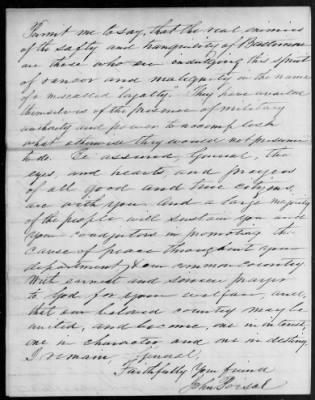 Permit me to say, that the real enimies
of the safty and tranquility of Baltimore
are those who are indulging this spirit
of rancor and malignity in the name
of a miscalled "loyalty". They have availed
themselves of the presence of military
authority and power to accomplish
what otherwise they would not presume
to do. Be assured, General, the
eyes, and hearts and prayers
of all good and true citizens,
are with you and a large majority
of the people will sustain you and
your coadjutors in promoting the
cause of peace throughout your
department & our common country
With earnest and sincere prayer
to God for your welfare, and,
that our beloved country may be
united, and become, one in interest,
one in character and one in destiny,
I remain, General,
Faithfully Your friend
John